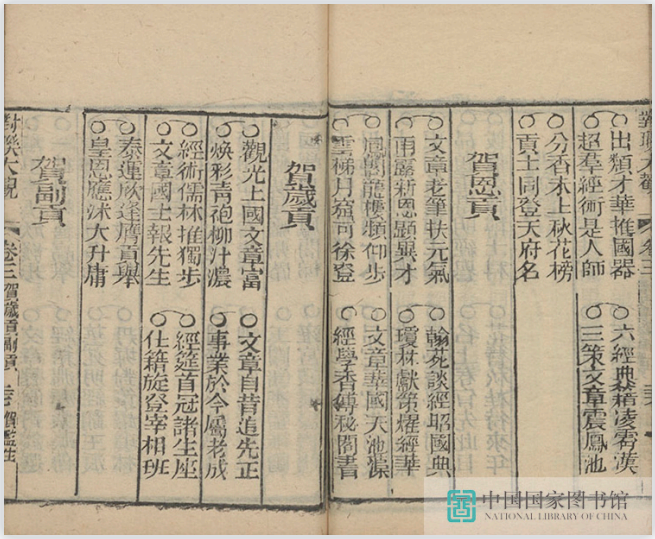 對聯大觀 卷三
出類才華推國器 六經典籍凌霄漢
超羣經術是人師 三策文章震鳳池
分香木上秋花榜
貢士同登天府名
賀恩貢
文章老筆扶元氣 翰苑談經昭國典
雨露新恩顯異才 瓊林獻策擢經華
鳳閣龍樓頻仰步 文章華國天池藻
雲梯月窟可徐登 經學香傳秘閣書
賀歲貢
觀光上國文章富 文章自昔追先正
煥彩青袍柳汁濃 事業於今屬老成
經術儒林推獨步 經筵首冠諸生座
文章國士報先生 仕籍旋登宰相班
泰運欣逢膺貢舉
皇恩應沐大升庸
賀副貢
對聯大觀 卷三 賀歲貢副貢 賀監生
中国国家图书馆
NATIONAL LIBRARY OF CHINA